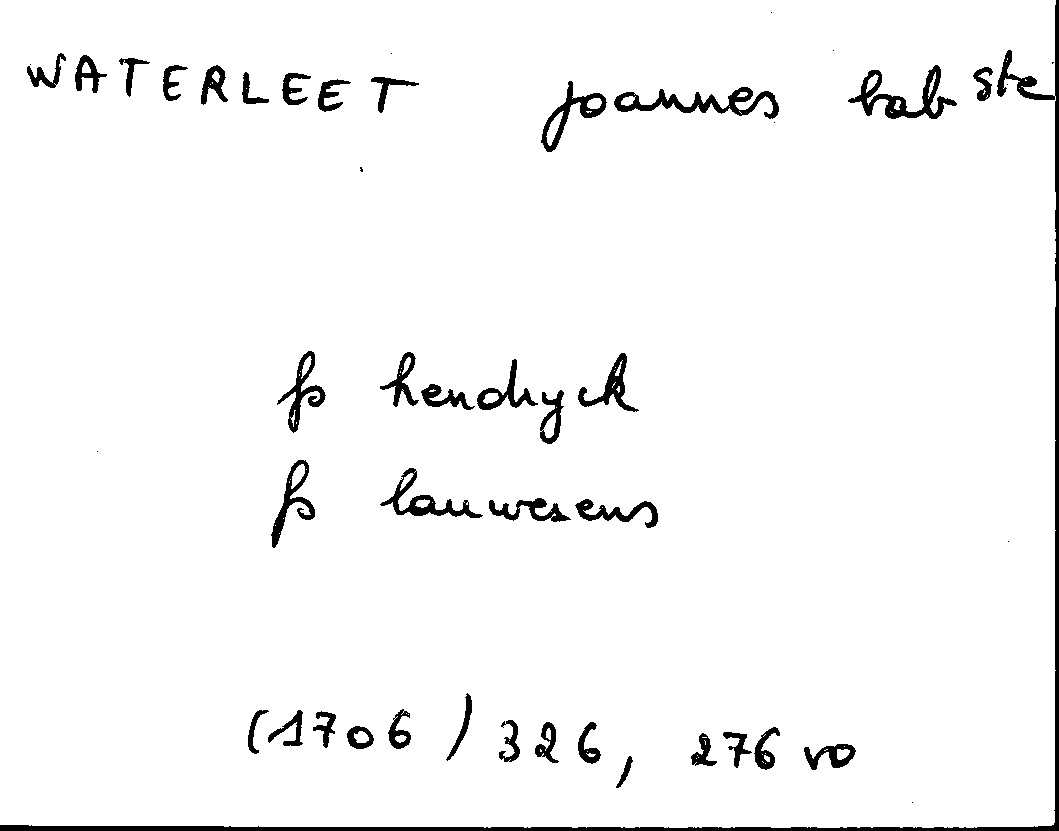 WATERLEET joannes bab ste
fs hendryck
fs lauwerens
(1706) 326, 276 vo